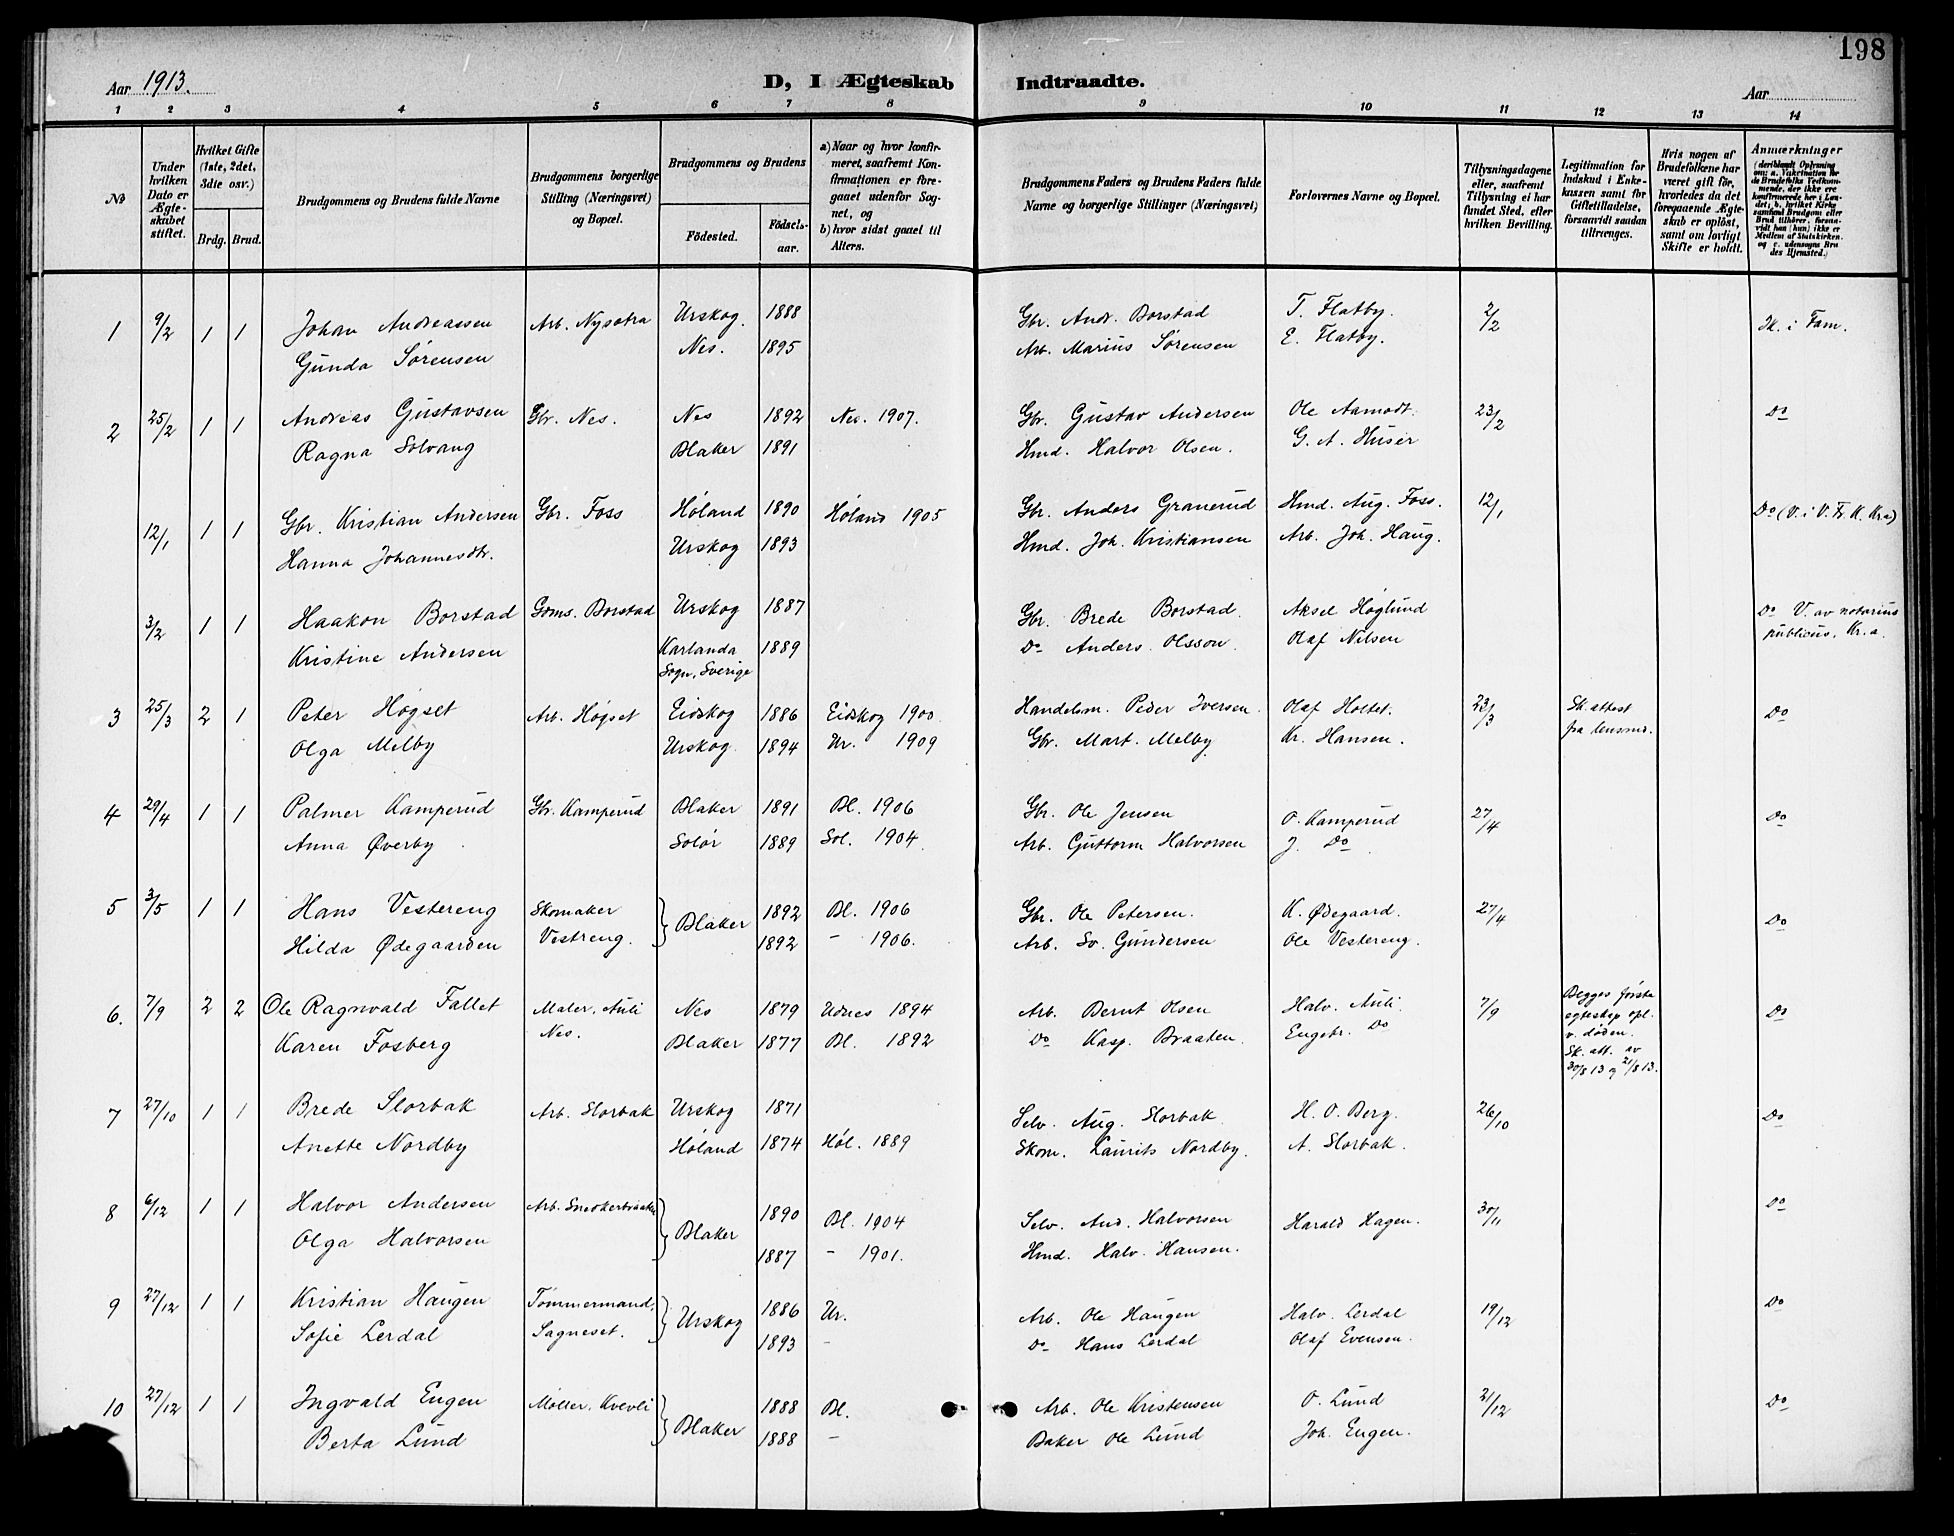 198
Aar 1913.
D, I Ægteskab Indtraadte.
Aar
1 2 3 4 5 6 7 8 9 10 11 12 13 14
No
Under hvilken Dato er Ægteskabet stiftet.
Hvilket Gifte (1ste, 2det, 3die osv.)
Brdg. Brud.
Brudgommens og Brudens fulde Navne
Brudgommens borgerlige Stilling (Næringsvei) og Bopæl.
Brudgommens og Brudens
Födested.
Födselsaar.
a) Naar og hvor konfirmeret, saafremt Konfirmationen er foregaaet udenfor Sognet, og
b) hvor sidst gaaet til Alters.
Brudgommens Faders og Brudens Faders fulde Navne og borgerlige Stillinger (Næringsvei)
Forlovernes Navne og Bopæl.
Tillysningsdagene eller, saafremt Tillysning ei har fundet Sted, efter hvilken Bevilling.
Legitimation for Indskud i Enkekassen samt for Giftetilladelse, forsaavidt saadan tiltrænges.
Hvis nogen af Brudefolkene har været gift før, hvorledes da det foregaaende Ægteskab er opløst, samt om lovligt Skifte er holdt.
Anmærkninger
(deriblandt Oplysning om: a. Vakcination for de Brudefolks Vedkommende, der ikke ere konfirmerede her i Landet; b. hvilket Kirkesamfund Brudgom eller Brud tilhører, forsaavidt han (hun) ikke er Medlem af Statskirken. og c. udensogns Brudes Hjemsted.)
1 9/2 1 1 Johan Andreassen Arb. Nysotra Urskog. 1888 Gbr. Andr. Borstad T. Flatby. 2/2 Sk. i Fam.
Gunda Sørensen Nes. 1895 Arb. Marius Sørensen E. Flatby.
2 25/2 1 1 Andreas Gustavsen Gbr. Nes. Nes 1892 Nes. 1907. Gbr. Gustav Andersen Ole Aamodt. 23/2 Do
Ragna Solvang Blaker 1891 Hmd. Halvor Olsen. G. A. Huser
12/1 1 1 Gbr. Kristian Andersen Gbr. Foss Høland 1890 Høland 1905 Gbr. Anders Granerud Hmd. Aug. Foss. 12/1 Do (V. i V. Fr. K. Kra)
Hanna Johannesdtr. Urskog 1893 Hmd. Joh. Kristiansen Arb. Joh. Haug.
3/2 1 1 Haakon Borstad Goms. Borstad Urskog 1887 Gbr. Brede Borstad. Aksel Høglund Do V. av notarius
Kristine Andersen Karlanda 1889 Do Anders Olsson. Olaf Nilsen publicus, Kr.a.
Sogn, Sverige
3 25/3 2 1 Peter Høgset Arb. Høgset Eidskog 1886 Eidskog 1900. Handelsm. Peder Iversen. Olaf Holtet. 23/3 Sk. attest Do
Olga Melby Urskog. 1894 Ur. 1909 Gbr. Mart. Melby Kr. Hansen. fra lensmd.
4 29/4 1 1 Palmer Kamperud Gbr. Kamperud Blaker 1891 Bl. 1906 Gbr. Ole Jensen O. Kamperud 27/4 Do
Anna Øverby. Solør 1889 Sol. 1904. Arb. Guttorm Halvorsen J. Do
5 3/5 1 1 Hans Vestereng Skomaker Blaker 1892 Bl. 1906 Gbr. Ole Petersen. K. Ødegaard. 27/4 Do
Hilda Ødegaarden Vestreng. 1892 – 1906. Arb. Sv. Gundersen Ole Vestereng.
6. 7/9 2 2 Ole Ragnvald Fallet Maler, Auli Nes 1879 Udnes 1894 Arb. Bernt Olsen Halv. Auli 7/9 Begges første Do
Karen Fosberg Nes. Blaker 1877 Bl. 1892 Do Kasp. Braaten. Engebr. Do egteskap opl.
v. døden.
Sk. att. av
30/8 13 og 21/8 13.
7 27/10 1 1 Brede Slorbak Arb. Slorbak Urskog 1871 Selv. Aug. Slorbak H. O. Berg. 26/10 Do
Anette Nordby Høland 1874 Høl. 1889 Skom. Laurits Nordby. A. Slorbak.
8 6/12 1 1 Halvor Andersen Arb. Snedkerbraaten Blaker 1890 Bl. 1904 Selv. And. Halvorsen Harald Hagen. 30/11 Do
Olga Halvorsen 1887 – 1901. Hmd. Halv. Hansen.
9 27/12 1 1 Kristian Haugen Tømmermand, Urskog 1886 Ur. Arb. Ole Haugen Halv. Lerdal 19/12 Do
Sofie Lerdal Sagneset. 1893 – Do Hans Lerdal Olaf Evensen.
10 27/12 1 1 Ingvald Engen Møller, Kvevli Blaker 1888 Bl. Arb. Ole Kristensen O. Lund 21/12 Do
Berta Lund 1888 – Baker Ole Lund Joh. Engen.